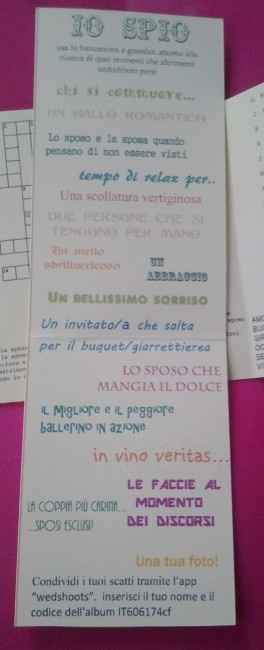 IO SPIO
usa la fotocamera e guardati attorno alla
ricerca di quei momenti che altrimenti
andrebbero persi
chi si commuove...
UN BALLO ROMANTICO
Lo sposo e la sposa quando
pensano di non essere visti
tempo di relax per..
Una scollatura vertiginosa
DUE PERSONE CHE SI
TENGONO PER MANO
Un metto
UN
ABBRACCIO
UN BELLISSIMO SORRISO
Un invitato/a che salta
per il buquet/giarrettierea
LO SPOSO CHE
MANGIA IL DOLCE
IL MIGLIORE E IL PEGGIORE
BALLERINO IN AZIONE
in vino veritas...
LE FACCIE AL
MOMENTO
DEI DISCORSI
LA COPPIA PIÙ CARINA...
...SPOSI ESCLUSI!
Una tua foto!
Condividi i tuoi scatti tramite l'app
"wedshoots". inserisci il tuo nome e il
codice dell'album IT606174cf